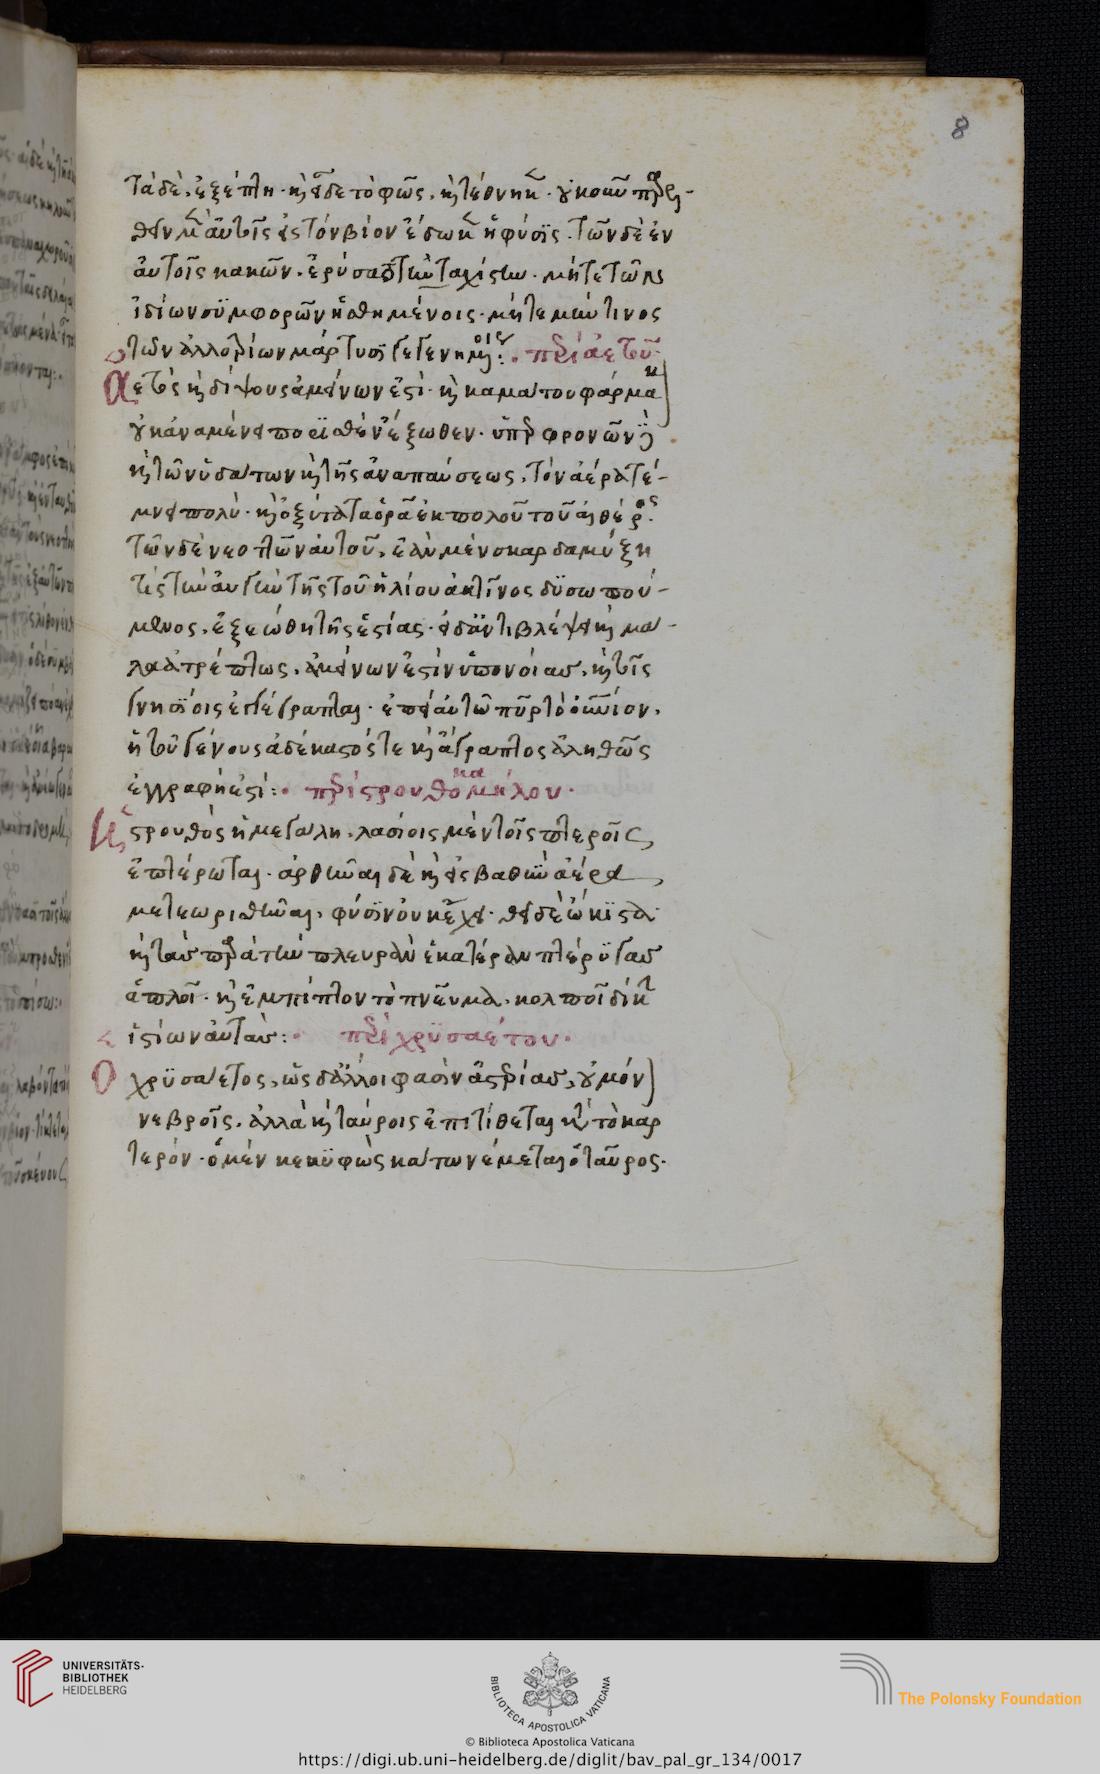 8
τὰ δὲ, ἐξέπτη· καὶ εἶδε τὸ φῶς, καὶ τέθνηκε· οὐκοῦν παρελ-
θεῖν μὲν αὐτοῖς εἰς τὸν βίον ἔδωκεν ἡ φύσις. τῶν δὲ ἐν
αὐτοῖς κακῶν, ἐρύσατο τὴν ταχίστην. μήτε τῶν
ἰδίων συμφορῶν ᾐσθημένοις· μήτε μήν τινος
τῶν ἀλλοτρίων μάρτυσι γεγενημένοις: περὶ ἀετοῦ·
ἀετὸς καὶ δίψους ἀμείνων ἐστί· καὶ καμάτου φάρμακ
οὐκ ἀναμένει ποθὲν ἔξωθεν· ὑπερφρονῶν δὲ
καὶ τῶν ὑδάτων καὶ τῆς ἀναπαύσεως, τὸν ἀέρα τέ-
μνει πολύν· καὶ ὀξύτατα ὁρᾶ ἐκ πολοῦ τοῦ αἰθέρος.
τῶν δὲ νεοττῶν αὐτοῦ, ἐὰν μὲν σκαρδαμύξη
τις τὴν αὐγὴν τῆς τοῦ ἡλίου ἀκτῖνος δυσωπού-
μενος, ἐξεώθη τῆς ἑστίας· εἰ δ' ἀντιβλέψει καὶ μά-
λα ἀτρέπτως, ἀμείνων ἐστὶν ὑπονοίας, καὶ τοῖς
γνησίοις ἐγγέγραπται· ἐπεὶ αὐτῶ πῦρ τὸ οὐράνιον,
ἡ τοῦ γένους ἀδέκαστός τε καὶ ἄγραπτος ἀληθῶς
ἐγγραφή ἐστι: περὶ στρουθοκαμήλου·
ἡ στρουθὸς ἡ μεγάλη, λασίοις μὲν τοῖς πτεροῖς
ἐπτέρωται· ἀρθῆναι δὲ καὶ εἰς βαθὺν ἀέρα
μετεωρισθῆναι, φύσιν οὐκ ἔχει· θεῖ δὲ ὤκιστα·
καὶ τὰς παρὰ τὴν πλευρὰν ἑκατέραν πτέρυγας
ἁπλοῖ· καὶ ἐμπίπτον τὸ πνεῦμα, κολποῖ δίκην
ἱστίων αὐτάς: περὶ χρυσαέτου·
ὁ χρυσάετος, ὡς δ' ἄλλοι φασὶν ἀστερίας, οὐ μόν
νεβροῖς, ἀλλὰ καὶ ταύροις ἐπιτίθεται κατὰ τὸ καρ
τερόν· ὁ μὲν κεκυφὼς κάτω νέμεται ὁ ταῦρος·
UNIVERSITÄTS-
BIBLIOTHEK
HEIDELBERG
BIBLIOTECA APOSTOLICA VATICANA
The Polonsky Foundation
© Biblioteca Apostolica Vaticana
https://digi.ub.uni-heidelberg.de/diglit/bav_pal_gr_134/0017